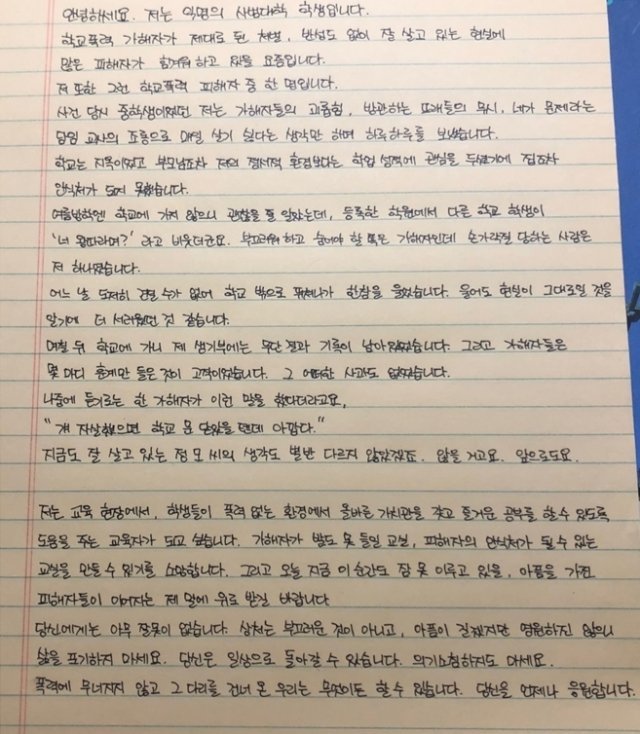 안녕하세요. 저는 익명의 사범대학 학생입니다.
학교폭력 가해자가 제대로 된 처벌, 반성도 없이 잘 살고 있는 현실에
많은 피해자가 힘겨워 하고 있을 요즘입니다.
저 또한 그런 학교폭력 피해자 중 한 명입니다.
사건 당시 중학생이었던 저는 가해자들의 괴롭힘, 방관하는 또래들의 무시, 네가 문제라는
담임 교사의 조롱으로 매일 살기 싫다는 생각만 하며 하루하루를 보냈습니다.
학교는 지옥이었고 부모님조차 저의 정서적 환경보다는 학업 성적에 관심을 두셨기에 집조차
안식처가 되지 못했습니다.
여름방학엔 학교에 가지 않으니 괜찮을 줄 알았는데, 등록한 학원에서 다른 학교 학생이
'너 왕따라며?' 라고 비웃더군요. 부끄러워하고 숨어야 할 쪽은 가해자인데 손가락질 당하는 사람은
저 하나였습니다.
어느 날 도저히 견딜 수가 없어 학교 밖으로 뛰쳐나가 한참을 울었습니다. 울어도 현실이 그대로일 것을
알기에 더 서러웠던 것 같습니다.
며칠 뒤 학교에 가니 제 생기부에는 무단결과 기록이 남아있었습니다. 그리고 가해자들은
몇 마디 훈계만 들은 것이 고작이었습니다. 그 어떠한 사과도 없었습니다.
나중에 듣기로는 한 가해자가 이런 말을 했다더라고요,
"걔 자살했으면 학교 문 닫았을 텐데 아깝다."
지금도 잘 살고 있는 정 모 씨의 생각도 별반 다르지 않았겠죠. 않을 거고요. 앞으로도요.
저는 교육 현장에서, 학생들이 폭력 없는 환경에서 올바른 가치관을 갖고 즐거운 공부를 할 수 있도록
도움을 주는 교육자가 되고 싶습니다. 가해자가 발도 못 들일 교실, 피해자의 안식처가 될 수 있는
교실을 만들 수 있기를 소망합니다. 그리고 오늘 지금 이 순간도 잠 못 이루고 있을, 아픔을 가진
피해자들이 이어지는 제 말에 위로 받길 바랍니다
당신에게는 아무 잘못이 없습니다. 상처는 부끄러운 것이 아니고, 아픔이 길겠지만 영원하진 않으니
삶을 포기하지 마세요. 당신은 일상으로 돌아갈 수 있습니다. 의기소침하지도 마세요.
폭력에 무너지지 않고 그 다리를 건너 온 우리는 무엇이든 할 수 있습니다. 당신을 언제나 응원합니다.